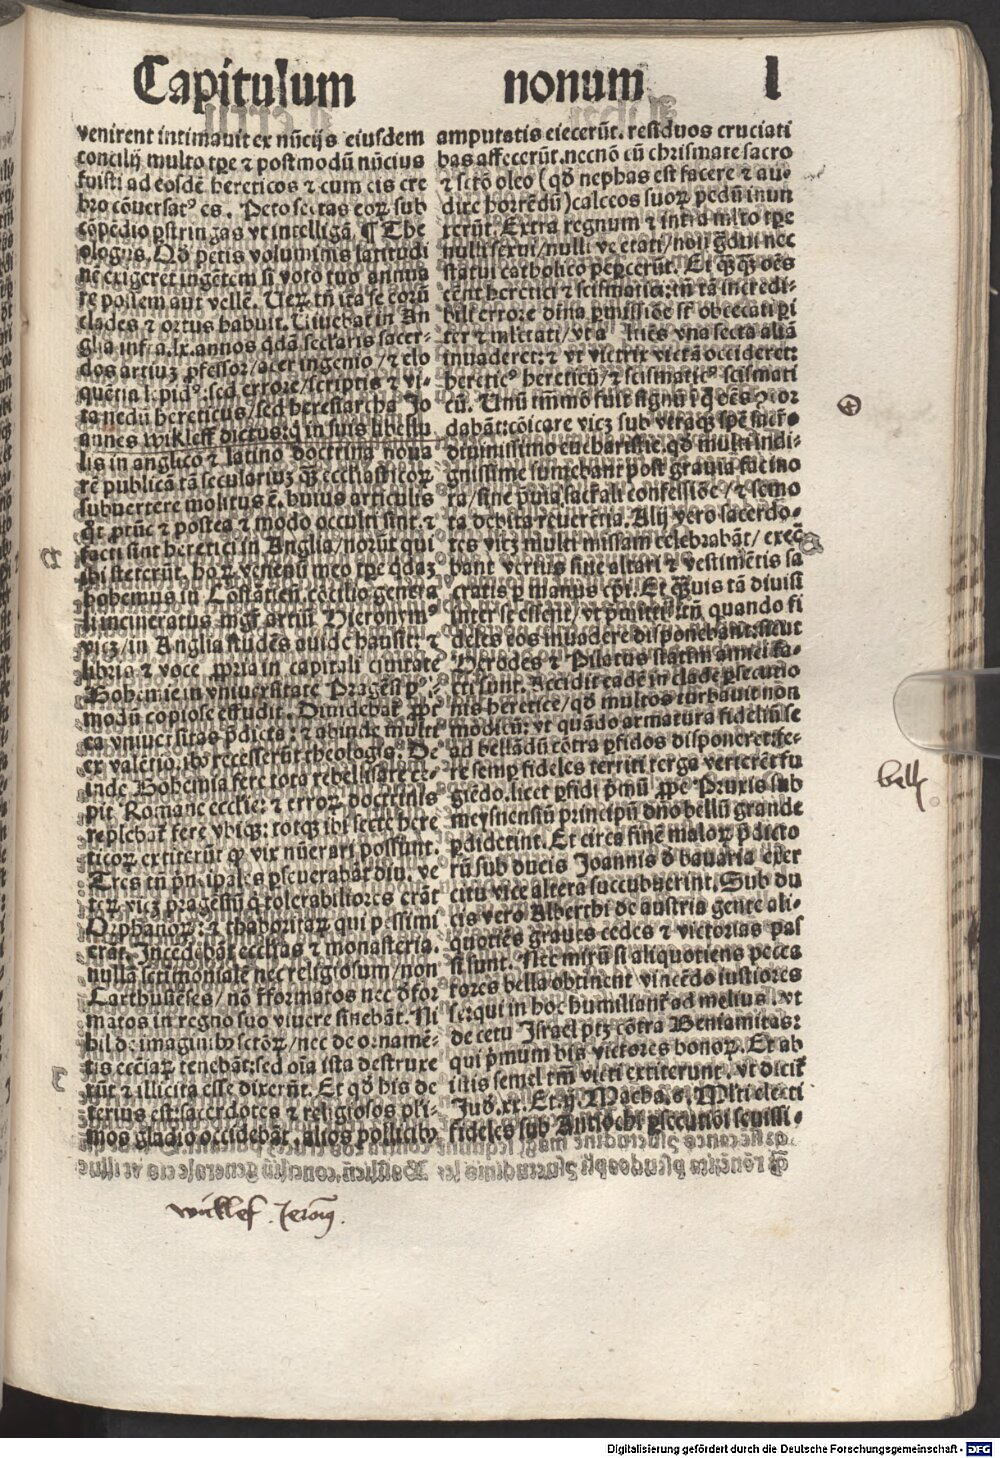 Capitulum nonum I
venirent intimauit ex nūcijs eiusdem
concilij multo tꝑe ⁊ postmodū nūcius
fuisti ad eosdē hereticos ⁊ cum eis cre
bro cōuersatꝰ es. Peto sectas eoꝝ sub
cōpēdio ꝑstringas vt intelligā. ¶ The
ologus. Qð petis voluminis latitudi
nē exigeret ingētem si voto tuo annue
re possem aut vellē. Ueꝝ tñ ita se eorū
clades ⁊ ortus habuit. Uiuebat in An
glia infra.lx.annos qdā seclaris sacer-
dos artiuꝫ ꝓfessor/acer ingenio/⁊ elo
quētia lepidꝰ:sed errore/scriptis ⁊ vi-
ta nedū hereticus/sed heresiarcha Jo
annes wikleff dictus:q̇ in suis libellu
lis in anglico ⁊ latino doctrina noua
rē publicā tā seculariuꝫ q̄ꝫ ecclīasticoꝝ
subuertere molitus ē. huius articulis
q̄t ꝓtūc ⁊ postea ⁊ modo occulti sint.⁊
facti sint heretici in Anglia/norūt qui
ibi steterūt. hoꝝ venenū meo tꝑe qdaꝫ
habemus in Cōstātien̄. cōcilio genera
li incineratus mgr̄ artiū Hieronymꝰ
vicꝫ/in Anglia studēs auide hausit: ⁊
libris ⁊ voce ꝓpria in capitali ciuitate
Bohemie in vniuersitate Pragēsi
modū copiose effudit. Diuidebat ꝓpt
ea vniuersitas p̄dicta: ⁊ abinde multi
ex valētio.ibꝰ recesserūt theologis. De
inde Bohemia fere tota rebellisare ce-
pit Romane ecclie: ⁊ erroꝝ doctrinis
replebat fere vbiqꝫ: totqꝫ ibi secte here
ticoꝝ extiterūt ꝙ vix nūerari possunt.
Tres tñ p̄ncipales ꝑseuerabāt diu. ve
teꝝ vicꝫ pragēsiū q̇ tolerabiliores erāt
Orphanoꝝ: ⁊ thaboritaꝝ qui pessimi
erāt. Incedebāt ecclīas ⁊ monasteria.
nullā sctimonialē nec religiosum/non
Carthusiēses/nō r̄formatos nec d̄for
matos in regno suo viuere sinebāt. Ni
hil de imaginibꝰ sctōꝝ/nec de ornamē-
tis eccīaꝝ tenebāt:sed oīa ista destruxe
rūt ⁊ illicita esse dixerūt. Et qð his de
terius est:sacerdotes ⁊ religiosos pli-
mos gladio occidebāt, alios pollicibꝰ
amputatis eiecerūt. residuos cruciati
bus affecerūt.necnō cū chrismate sacro
⁊ sctō oleo (qð nephas est facere ⁊ au-
dire horrēdū)calceos suoꝝ pedū inun
xerūt. Extra regnum ⁊ intra mlto tꝑe
nulli sexui/nulli ve etati/non ḡdui nec
statui catholico peꝑcerūt. Et q̄ꝫq̄ꝫ oēs
eēnt heretici ⁊ scismatici:tñ tā incredi-
bili errore dīna ꝑmissiōe sr̄ obcecati pi
ter ⁊ inicitati/vt a    vna secta aliā
inuaderet: ⁊ vt victrix victā occideret:
hereticꝰ hereticū/⁊ scismaticꝰ scismati
cū. Unū immo fuit signū ī q̇ oēs ꝯcor
dabāt:cōicare vicꝫ sub vtraqꝫ spē sacro
diuinissimo eucharistie. qð multi indi-
gnissime sumebant post grauia facino
ra/sine p̄uia sacr̄ali confessiōe/⁊ semo
ta debita reuerētia. Alij vero sacerdo-
tes vicꝫ multi missam celebrabāt/execꝫ
bant verius sine altari ⁊ vestimētis sa
cratis ꝑ manus cpt̄. Et q̄ꝫuis tā diuisi
inter se essent/vt p̄mittit.tñ quando fi
deles eos inuadere disponebant: sicut
Herodes ⁊ Pilatus statim amici fa-
cti sunt. Accidit eadē in clade ꝑsecutio
nis heretice/qð multos turbauit non
modicū: vt quādo armatura fideliū se
ad bellādū cōtra ꝑfidos disponeret:fe-
re semꝑ fideles territi terga verterēt fu
giēdo.licet ꝑfidi p̄mū ꝓpe Pruxis sub
meysnensiū principū dn̄o bellū grande
ꝑdidetint. Et circa finē maloꝝ p̄dicto
rū sub ducis Joannis d̄ bauaria exer
citu vice altera succubuerint. Sub du
cis vero Alberthi de austria gente ali-
quotiēs graues cedes ⁊ victorias pas
si sunt. Nec mirū si aliquotiens pecca
tores bella obtinent vincēdo iustiores
se:qui in hoc humiliant̄ ad melius. vt
de cetu Israel ptꝫ cōtra Beniamitas:
qui p̄mum bis victores bonoꝝ. Et ab
istis semel tm̄ victi extiterunt. vt dicit̄
Jud.xx. Et.ij. Macha.6. Mlti electi
fideles sub Antiochi ꝑsecutiōi seuissi-
bell
wicklef. Jeronȳ.
Digitalisierung gefördert durch die Deutsche Forschungsgemeinschaft - DFG